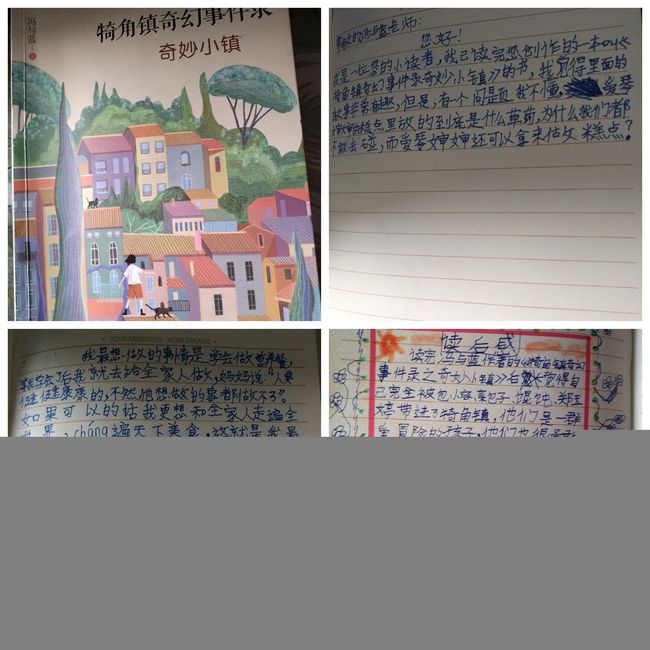 冯与蓝
著
犄角镇奇幻事件录
奇妙小镇
敬爱的冯与蓝老师:
您好!
我是一位您的小读者,我已读完您创作的一本叫《
犄角镇奇幻事件录奇妙小镇》的书,我觉得里面的
故事非常有趣,但是,有个问题我不懂,爱琴
婶婶的糕点里放的到底是什么草药,为什么我们都
不敢去碰,而爱琴婶婶还可以拿来做糕点?
YOUR MEMORIES YOUR DREAMS
我最想做的事情是学会做营养餐,
等我学会了后我就去给全家人做,妈妈说“人要
健健康康的,不然他想做的事都做不了”。
如果可以的话我更想和全家人走遍全
世界,cháng遍天下美食,这就是我最
读后感
读完冯与蓝作者的《犄角镇奇幻
事件录之奇妙小镇》后觉得自
己完全被包小容、菜包子、馄饨、郑玉
婷带进了犄角镇,他们是一群
爱冒险的孩子,他们也很勇敢